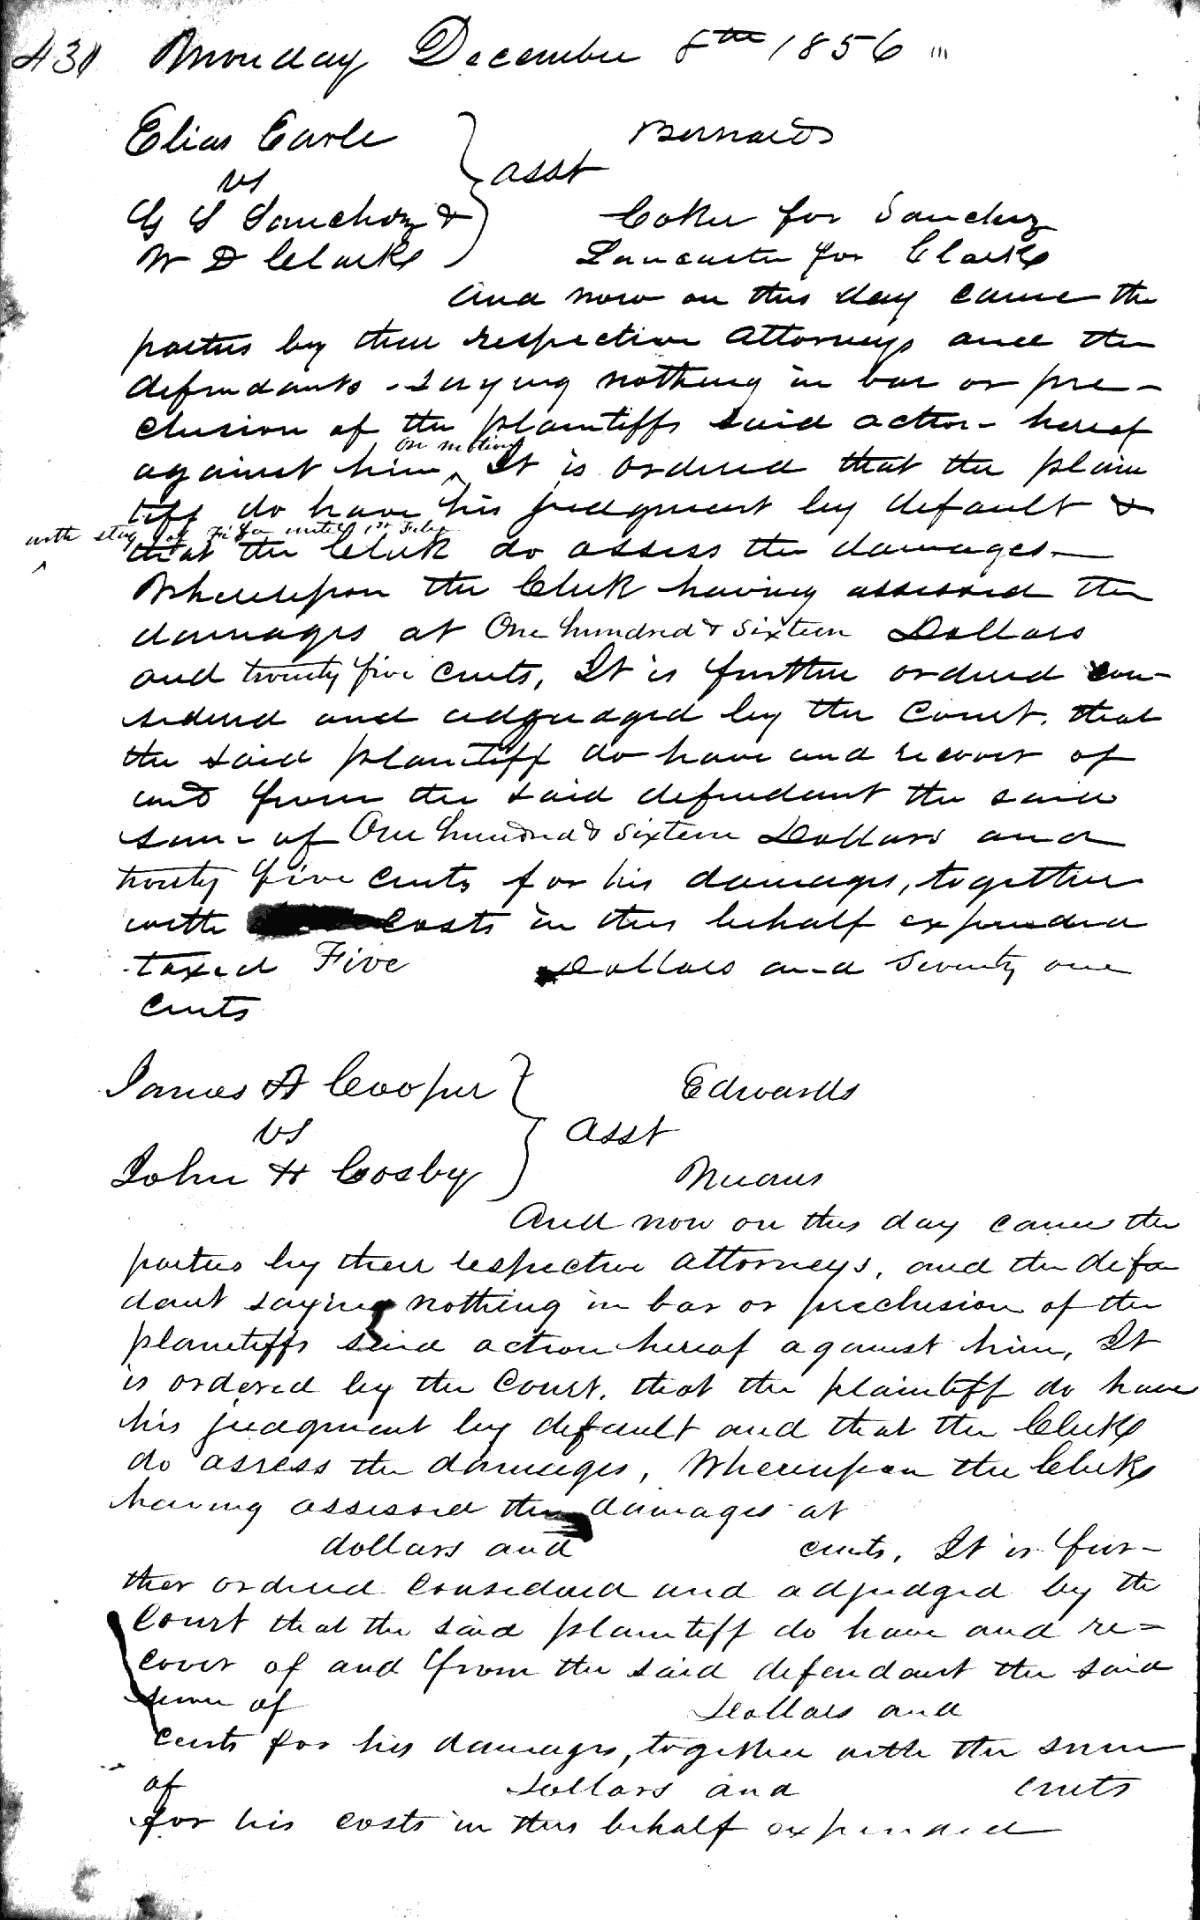 430 Monday December 8th 1856
Elias Earle Bernards
vs asst
G S Sanchez & Coker for Sanchez
W D Clarke Lancaster for Clarke
And now on this day came the
parties by their respective attorneys and the
defendants saying nothing in bar or pre-
clusion of the plaintiffs said action hereof
on motion
against him ^ It is ordered that the plain
tiff do have his judgment by default &
with stay of Fi Fa until 1st Feby
^ that the Clerk do assess the damages
Whereupon the Clerk having assessed the
damages at One hundred & sixteen Dollars
and twenty five cents, It is further ordered con-
sidered and adjudged by the Court. that
the said plaintiff do have and recover of
and from the said defendant the said
sum of One hundred & sixteen Dollars and
twenty five cents for his damages, together
with costs in this behalf expended
taxed Five Dollars and Seventy one
cents
James A Cooper Edwards
vs asst
John H Cosby Means
And now on this day came the
parties by their respective attorneys, and the defen
dant saying nothing in bar or preclusion of the
plaintiffs said action hereof against him, It
is ordered by the Court. that the plaintiff do have
his judgment by default and that the Clerk
do assess the damages, Whereupon the Clerk
having assessed the damages at
dollars and cents. It is fur-
ther ordered considered and adjudged by the
Court that the said plaintiff do have and re=
cover of and from the said defendant the said
sum of Dollars and
cents for his damages, together with the sum
of Dollars and cents
for his costs in this behalf expended